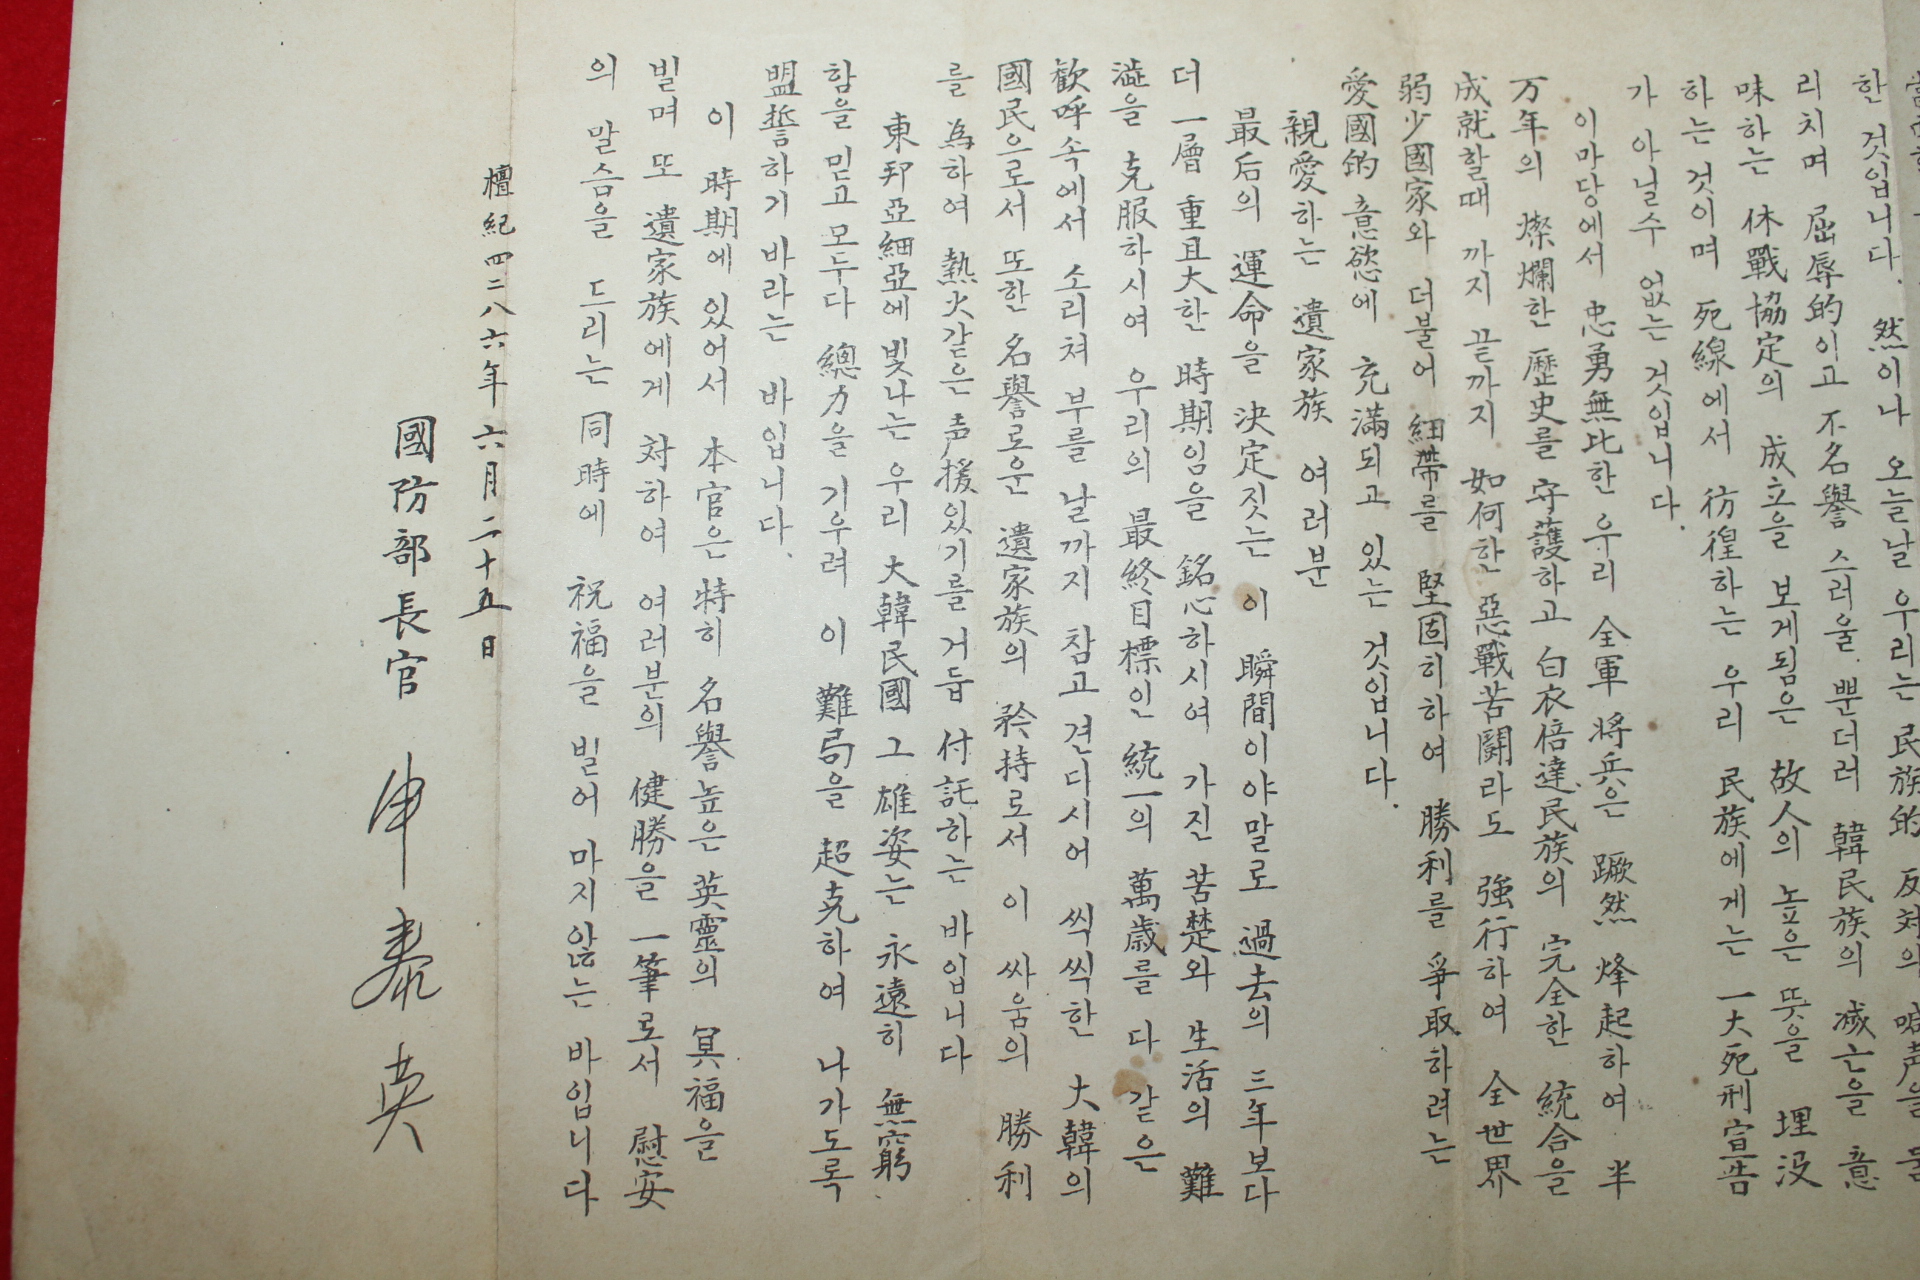 한 것입니다. 然이나 오늘날 우리는 民族的 反対의 喊声을
리치며 屈辱的이고 不名譽스러울 뿐더러 韓民族의 滅亡을 意
味하는 休戰協定의 成立을 보게됨은 故人의 높은 뜻을 埋没
하는것이며 死線에서 彷徨하는 우리 民族에게는 一大死刑宣告
가 아닐수 없는 것입니다.
이마당에서 忠勇無比한 우리 全軍 将兵은 蹶然 烽起하여 半
万年의 燦爛한 歷史를 守護하고 白衣倍達民族의 完全한 統合을
成就할때 까지 끝까지 如何한 惡戰苦闘라도 強行하여 全世界
弱少國家와 더불어 細帶를 堅固히하여 勝利를 爭取하려는
愛國的 意慾에 充滿되고 있는 것입니다.
親愛하는 遺家族 여러분
最后의 運命을 決定짓는 이 瞬間이야말로 過去의 三年보다
더 一層 重且大한 時期임을 銘心하시여 가진 苦楚와 生活의 難
澁을 克服하시여 우리의 最終目標인 統一의 萬歲를 다 같은
歓呼속에서 소리쳐 부를 날까지 참고 견디시어 씩씩한 大韓의
國民으로서 또한 名譽로운 遺家族의 矜持로서 이 싸움의 勝利
를 為하여 熱火같은 声援있기를 거듭 付託하는 바입니다
東邦亞細亞에 빛나는 우리 大韓民國 그 雄姿는 永遠히 無窮
함을 믿고 모두다 總力을 기우려 이 難局을 超克하여 나가도록
盟誓하기 바라는 바입니다.
이 時期에 있어서 本官은 特히 名譽높은 英靈의 冥福을
빌며 또 遺家族에게 対하여 여러분의 健勝을 一筆로서 慰安
의 말슴을 드리는 同時에 祝福을 빌어 마지않는 바입니다
檀紀四二八六年 六月二十五日
國防部長官 申泰英